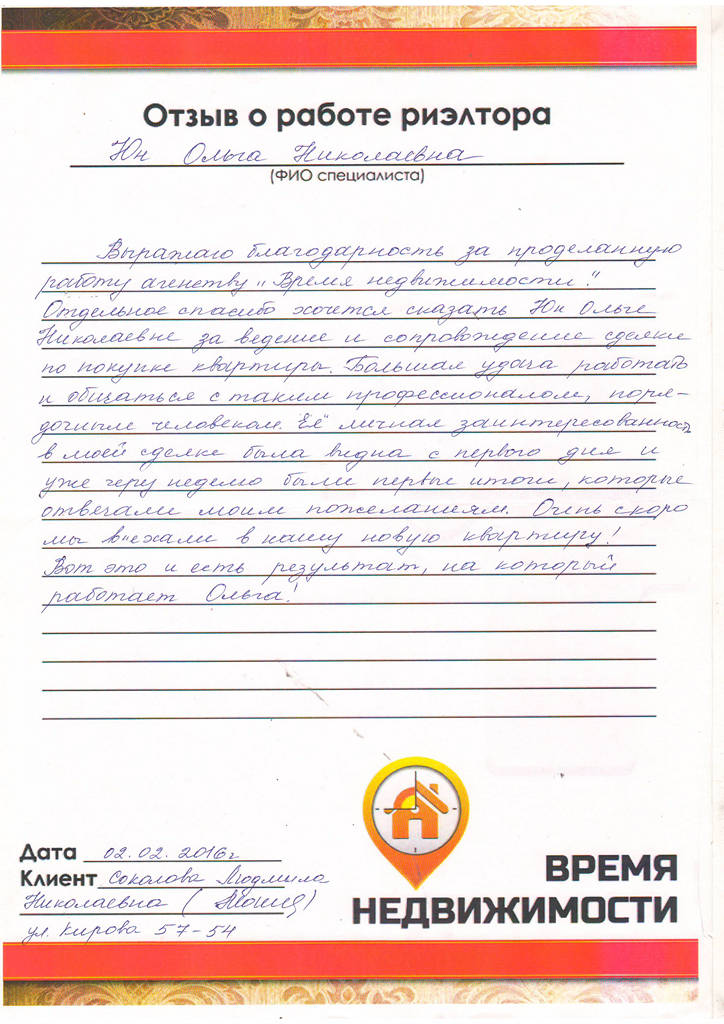 Отзыв о работе риэлтора
Юн Ольга Николаевна
(ФИО специалиста)
Выражаю благодарность за проделанную
работу агенству „Время недвижимости".
Отдельное спасибо хочется сказать Юн Ольге
Николаевне за ведение и сопровождение сделки
по покупке квартиры. Большая удача работать
и общаться с таким профессионалом, поря-
дочным человеком. "Её" личная заинтересованность
в моей сделке была видна с первого дня и
уже через неделю были первые итоги, которые
отвечали моим пожеланиям. Очень скоро
мы въехали в нашу новую квартиру!
Вот это и есть результат, на который
работает Ольга!
Дата 02.02.2016г
Клиент Соколова Людмила
Николаевна ( )
ул. Кирова 57-54
ВРЕМЯ
НЕДВИЖИМОСТИ